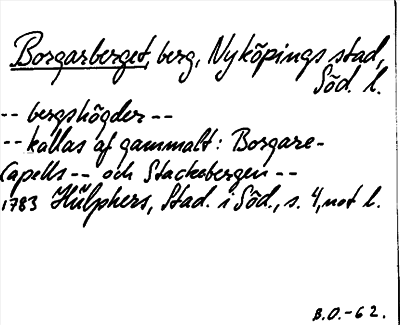 Borgarberget, berg, Nyköpings stad,
Söd. l.
-- bergshögder --
-- kallas af gammalt: Borgare-
Capells -- och Stackebergen --
1783 Hülphers, Stad. i Söd., s. 4, not l.
B.O.-62.